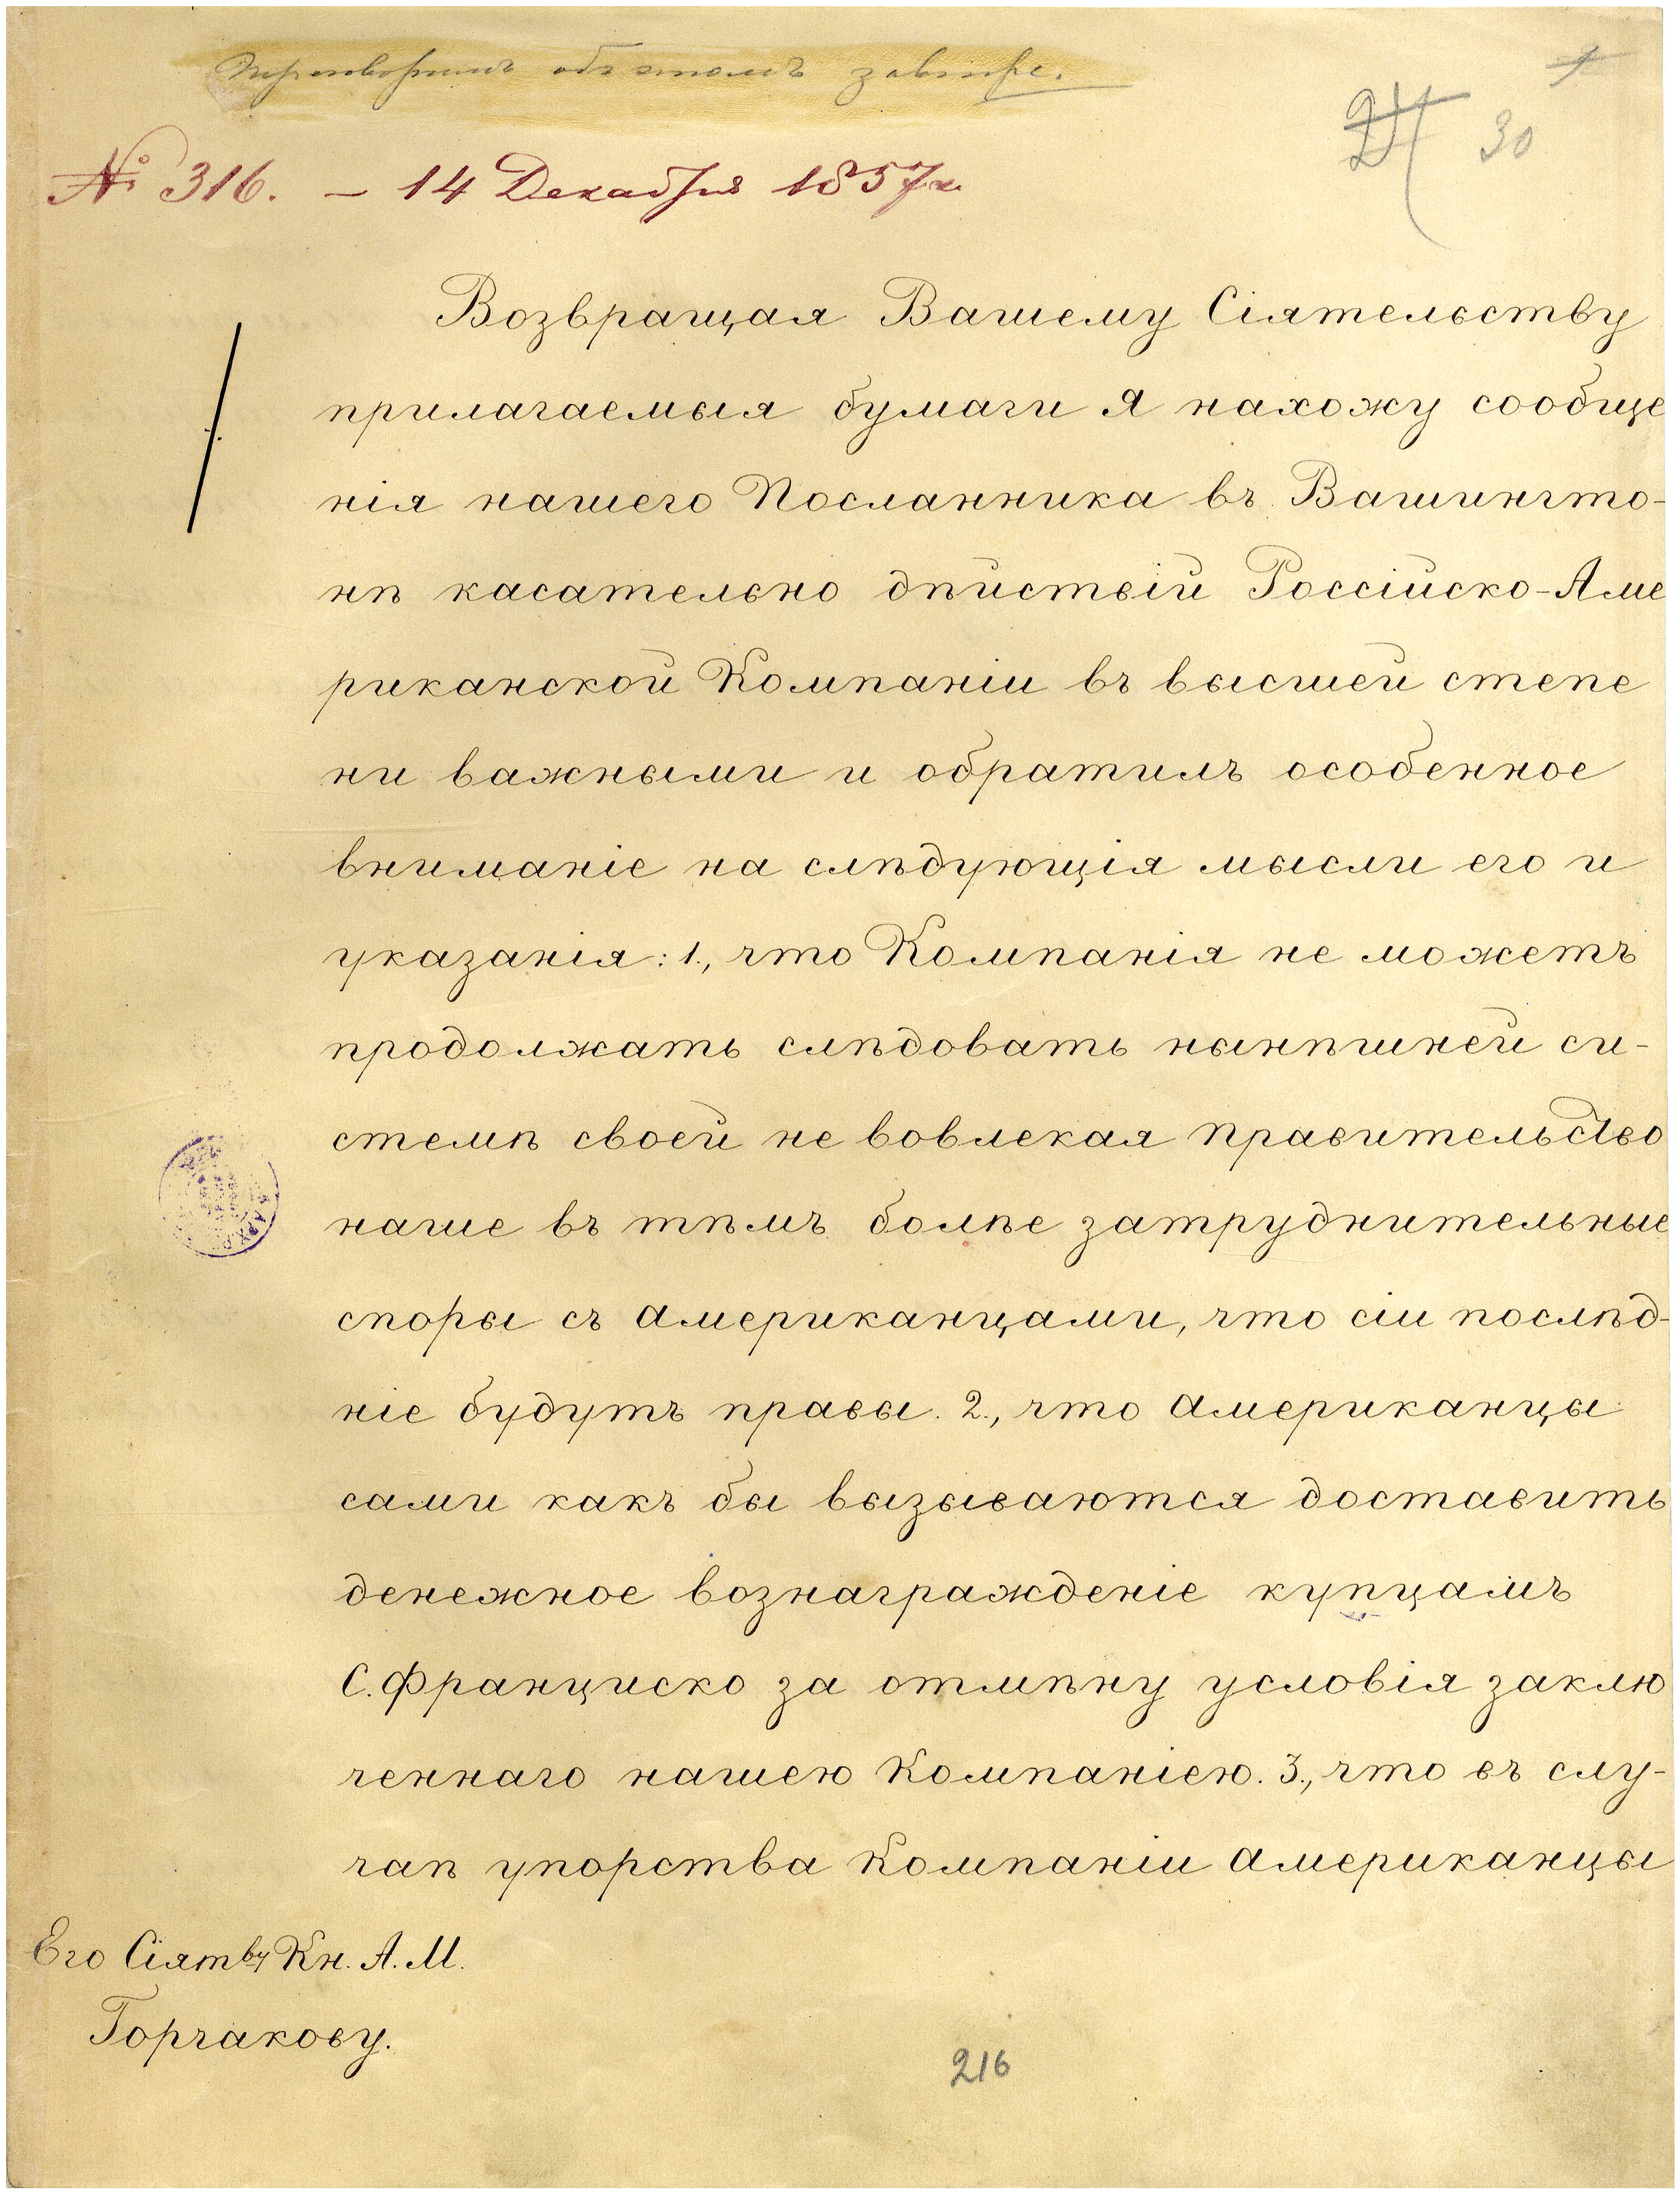 Переговоримъ объ этомъ завтра.
№ 316. – 14 Декабря 1857 г.
30
Возвращая Вашему Сіятельству
прилагаемыя бумаги я нахожу сообще
нія нашего Посланника въ Вашингто-
нѣ касательно дѣйствій Россійско-Аме
риканской Компаніи въ высшей степе
ни важными и обратилъ особенное
вниманіе на слѣдующія мысли его и
указанія: 1., что Компанія не можетъ
продолжать слѣдовать нынѣшней си-
стемѣ своей не вовлекая правительство
наше въ тѣмъ болѣе затруднительные
споры съ Американцами, что сіи послѣд-
ніе будутъ правы. 2., что Американцы
сами какъ бы вызываются доставить
денежное вознагражденіе купцамъ
С. Франциско за отмѣну условія заклю
ченнаго нашею Компаніею. 3., что въ слу-
чаѣ упорства Компаніи Американцы
Его Сіятву Кн. А. М.
Горчакову.
216